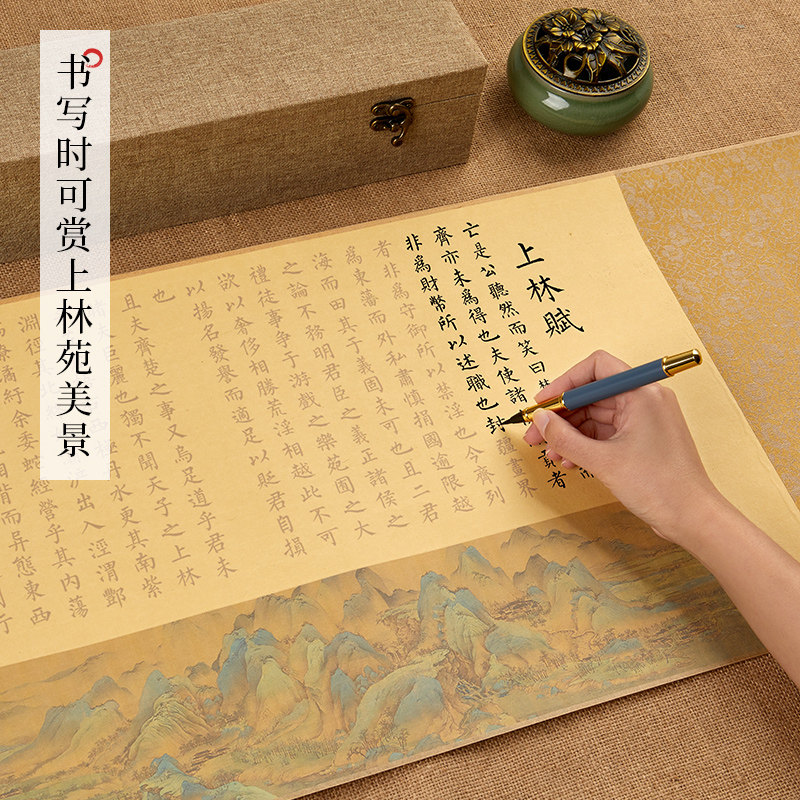 书写时可赏上林苑美景
上林賦
亡是公聽然而笑曰
齊亦未爲得也夫使諸貢者
非爲財幣所以述職也封疆畫界
者非爲守御所以禁淫也今齊列
爲東藩而外私肅慎捐國逾限越
海而田其于義固未可也且二君
之論不務明君臣之義正諸侯之
禮徒事爭于游戲之樂苑囿之大
欲以奢侈相勝荒淫相越此不可
以揚名發譽而適足以貶君自損
也
且夫齊楚之事又烏足道乎君未
夫巨麗也獨不聞天子之上林
極丹水更其南紫
淵徑其北出入涇渭酆
潏紆余委蛇經營乎其內蕩
相背而异態東西
行